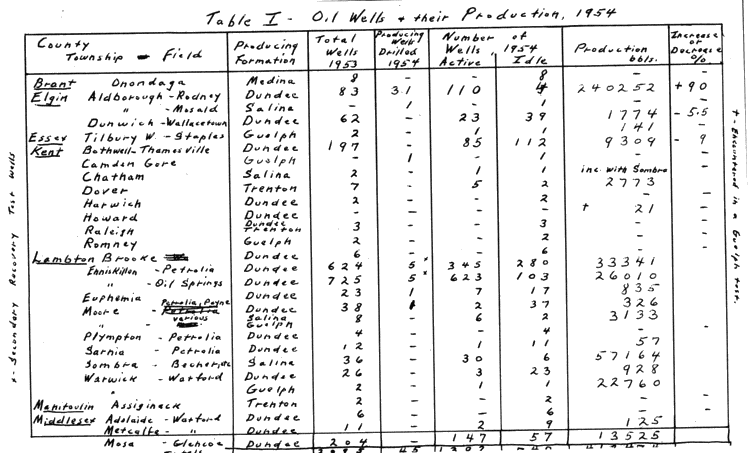 Table I - Oil Wells & their Production, 1954
County Township - Field | Producing Formation | Total Wells 1953 | Producing Wells Drilled 1954 | Number of Wells, 1954 Active | Idle | Production bbls. | Increase or Decrease %
Brant Onondaga Medina 8 - - 8 - -
Elgin Aldborough - Rodney Dundee 83 31 110 4 240252 +90
" - Mosald Salina - 1 - 1 - -
Dunwich - Wallacetown Dundee 62 - 23 39 1774 -5.5
Essex Tilbury W. - Staples Guelph 2 - 1 1 141
Kent Bothwell - Thamesville Dundee 197 - 85 112 9309 - 9
Camden Gore Guelph - 1 - 1 - -
Chatham Salina 2 - 1 1 inc. with Sombra
Dover Trenton 7 - 5 2 2773
Harwich Dundee 2 - - 2 - -
Howard Dundee - - - - † 21 -
Raleigh Dundee Trenton 3 - - 3 - -
Romney Guelph 2 - - 2 - -
Lambton Brooke Dundee 6 - - 6 -
Enniskillen - Petrolia Dundee 624 5 x 345 280 33341
" - Oil Springs Dundee 725 5 x 623 103 26010
Euphemia Dundee 23 1 7 17 835
Moore - Petrolia, Payne Dundee 38 1 2 37 326
" various Salina Guelph 8 - 6 2 3133
Plympton - Petrolia Dundee 4 - - 4 - -
Sarnia - Petrolia Dundee 12 - 1 11 57
Sombra - Becher, etc Salina 36 - 30 6 57164
Warwick - Watford Dundee 26 - 3 23 928
" Guelph 2 - 1 1 22760
Manitoulin Assiginack Trenton 2 - - 2 - -
Middlesex Adelaide - Watford Dundee 6 - - 6 - -
Metcalfe - " Dundee 11 - 2 9 125
Mosa - Glencoe Dundee 204 - 147 57 13525
x - Secondary Recovery Test Wells
† - Encountered in a Guelph test.